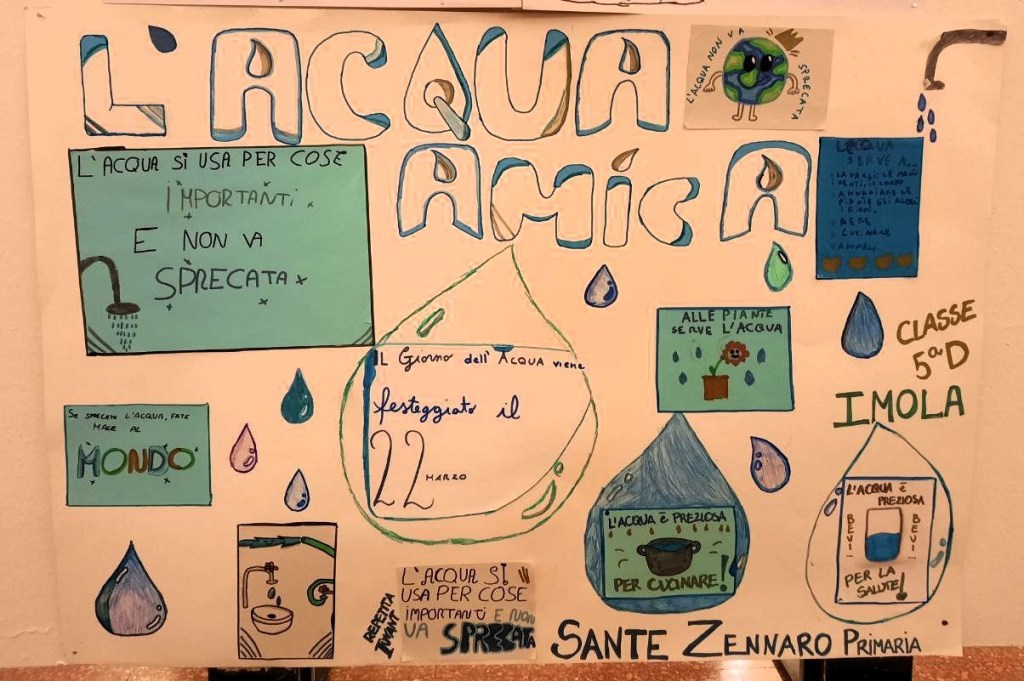 L'ACQUA
AMICA
L'ACQUA NON VA
SPRECATA
L'ACQUA SI USA PER COSE
IMPORTANTI
E NON VA
SPRECATA
L'ACQUA
SERVE A...
LAVARSI: LE MANI
DENTI, IL CORPO
ANNAFFIARE: LE
PIANTE GLI ALBERI
I FIORI.
BERE
CUCINARE
ANIMALI
ALLE PIANTE
SERVE L'ACQUA
CLASSE
5ªD
IMOLA
IL Giorno dell'Acqua viene
festeggiato il
22 MARZO
SE SPRECATE L'ACQUA, FATE
MALE AL
MONDO
L'ACQUA È PREZIOSA
PER CUCINARE!
L'ACQUA È
PREZIOSA
BEVI
BEVI
PER LA
SALUTE!
REPETITA
IUVANT
L'ACQUA SI
USA PER COSE
IMPORTANTI E NON
VA SPRECATA
SANTE ZENNARO PRIMARIA